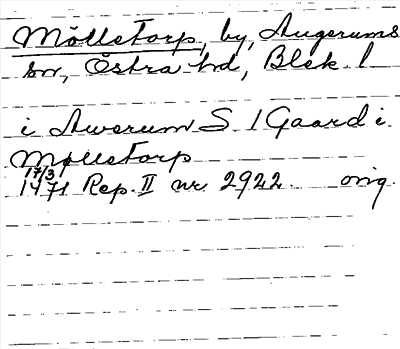 Mölletorp, by, Augerums
sn, Östra hd, Blek. l
i Awerum S. 1 Gaard i
Mølletorp
17/3
1471 Rep. II nr 2922 orig.